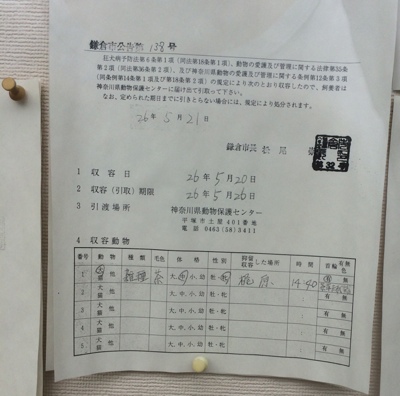 鎌倉市公告第 138 号
狂犬病予防法第6条第1項(同法第18条第1項)、動物の愛護及び管理に関する法律第35条
第2項(同法第36条第2項)、及び神奈川県動物の愛護及び管理に関する条例第13条第3項
(同条例第14条第1項及び第18条第2項)の規定により次のとおり収容したので、飼養者は
神奈川県動物保護センターに届け出て引取って下さい。
なお、定められた期日までに引きとらない場合には、規定により処分されます。
26年5月21日
鎌倉市長 松尾 崇
1 収容日 26年5月20日
2 収容(引取)期限 26年5月26日
3 引渡場所 神奈川県動物保護センター
平塚市土屋401番地
電話 0463(58)3411
4 収容動物
番号 動物 種類 毛色 体格 性別 収容した場所 時間 首輪 有無 色
1 犬 猫 他 雑種 茶 大、中、小、幼 牡・牝 梶原 14:40 有
2 犬 猫 他 大、中、小、幼 牡・牝 : 有 無
3 犬 猫 他 大、中、小、幼 牡・牝 : 有 無
4 犬 猫 他 大、中、小、幼 牡・牝 : 有 無
5 犬 猫 他 大、中、小、幼 牡・牝 : 有 無